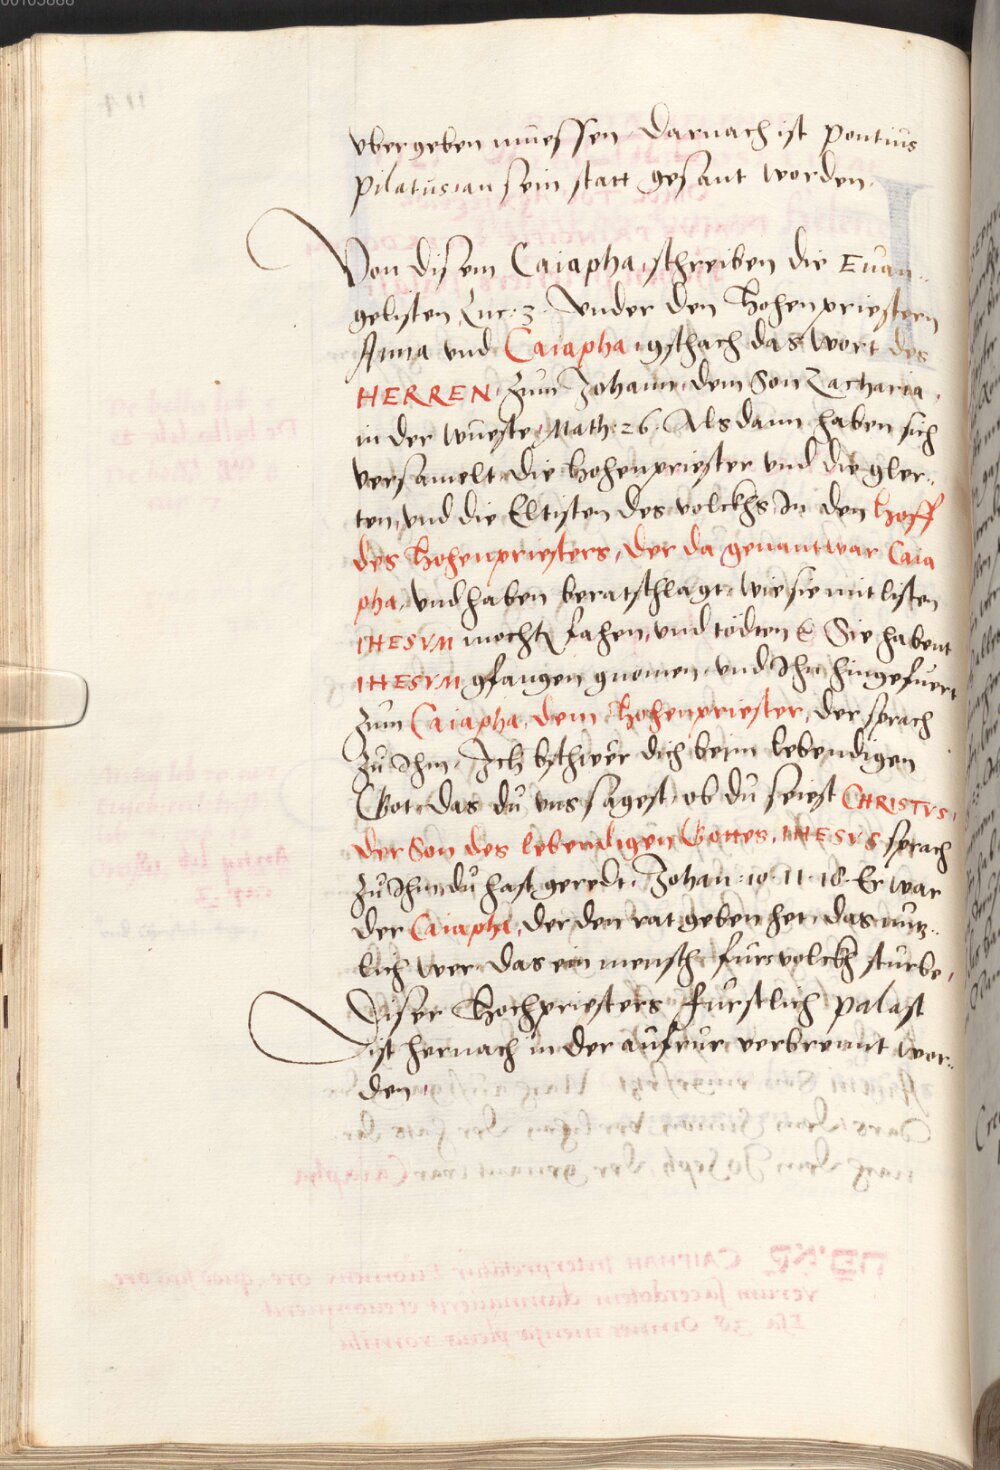 vbergeben müessen Darnach ist Pontius
Pilatus an sein statt gesant worden.
Von disem Caiapha, schreiben die Euan-
gelisten Luc: 3. Vnder den Hohenpriestern
Anna vnd Caiapha, gschach das wort des
HERREN zum Johann dem Son Zacharia,
in der Wüeste, Math: 26. Als dann haben sich
versamelt die Hohenpriester vnd die gler-
ten, vnd die Eltisten des volckhs In den Hoff
des Hohenpriesters, Der da genant war Caia
pha, vnd haben beratschlagt wie sie mit listen
IHESVM mochtn fahen, vnd tödten Sie habent
IHESVM gfangen gnomen vnd Ihn hingefuert
Zum Caiapha, dem Hohenpriester, der sprach
Zu Ihm, Ich bschwer dich beim lebendigen
Got das du vns sagest ob du seiest CHRISTVS,
der Son des lebendigen Gottes, IHESVS sprach
Zu Ihm du hast geredt. Johan. 10. 11. 18. Er war
der Caiapha, der den rat geben het, das nutz-
lich wer das ein mensch fürs volckh sturbe,
Diser Hochpriesters fürstlich palast
ist hernach in der aufrur verbrennt wor-
den,